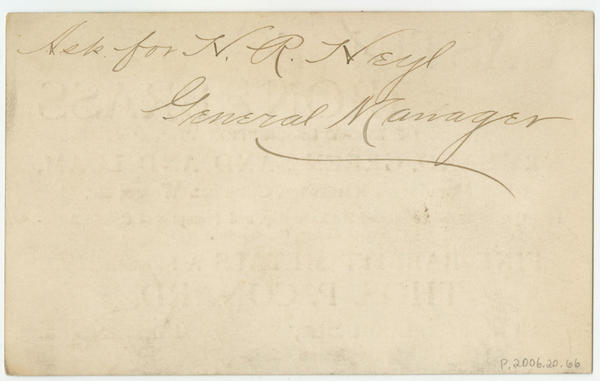 Ask for H. R. Heyl
General Manager
P.2006.20.66